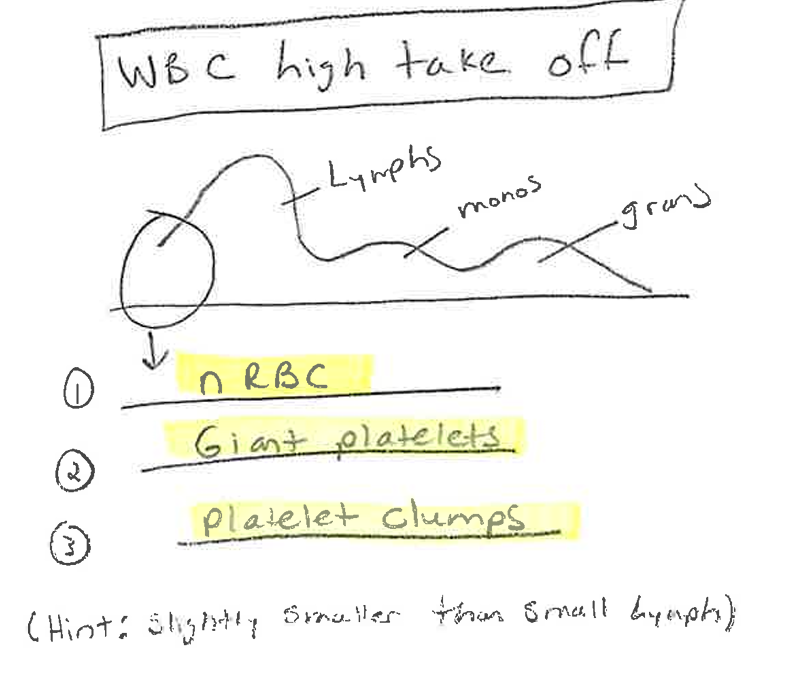 WBC high take off
Lymphs
monos
grans
① nRBC
② Giant platelets
③ platelet clumps
(Hint: slightly smaller than small lymphs)